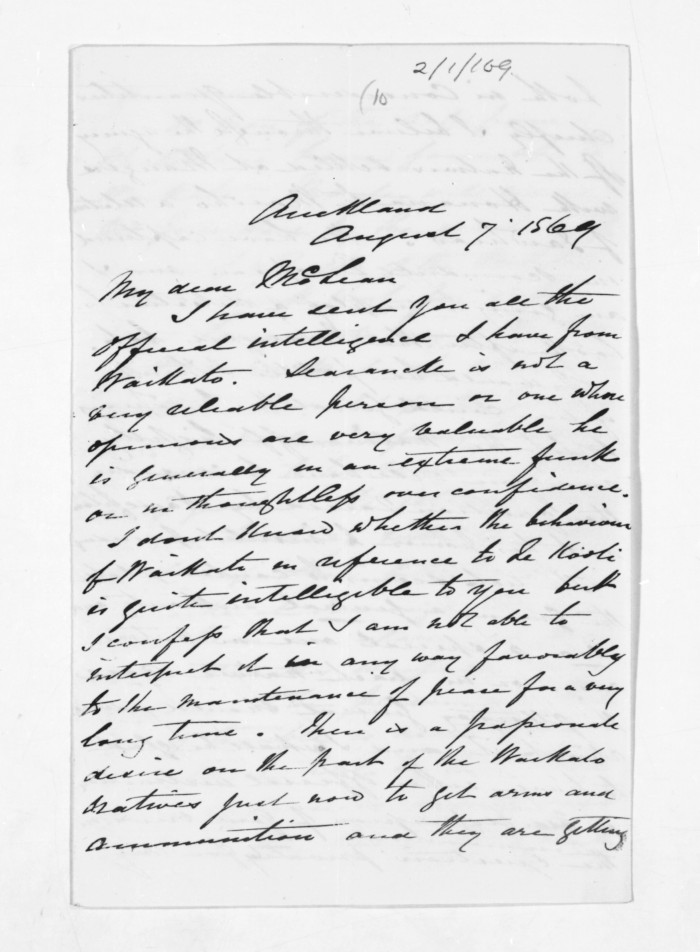 2/1/169
(10
Auckland
August 7. 1869
My dear McLean
I have sent you all the
official intelligence I have from
Waikato. Searancke is not a
very reliable person or one whose
opinions are very valuable he
is generally in an extreme funk
or in thoughtless over confidence.
I dont know whether the behaviour
of Waikato in reference to Te Kooti
is quite intelligible to you but
I confess that I am not able to
interpret it in any way favorably
to the maintenance of peace for a very
long time. There is a passionate
desire on the part of the Waikato
natives just now to get arms and
ammunition and they are getting